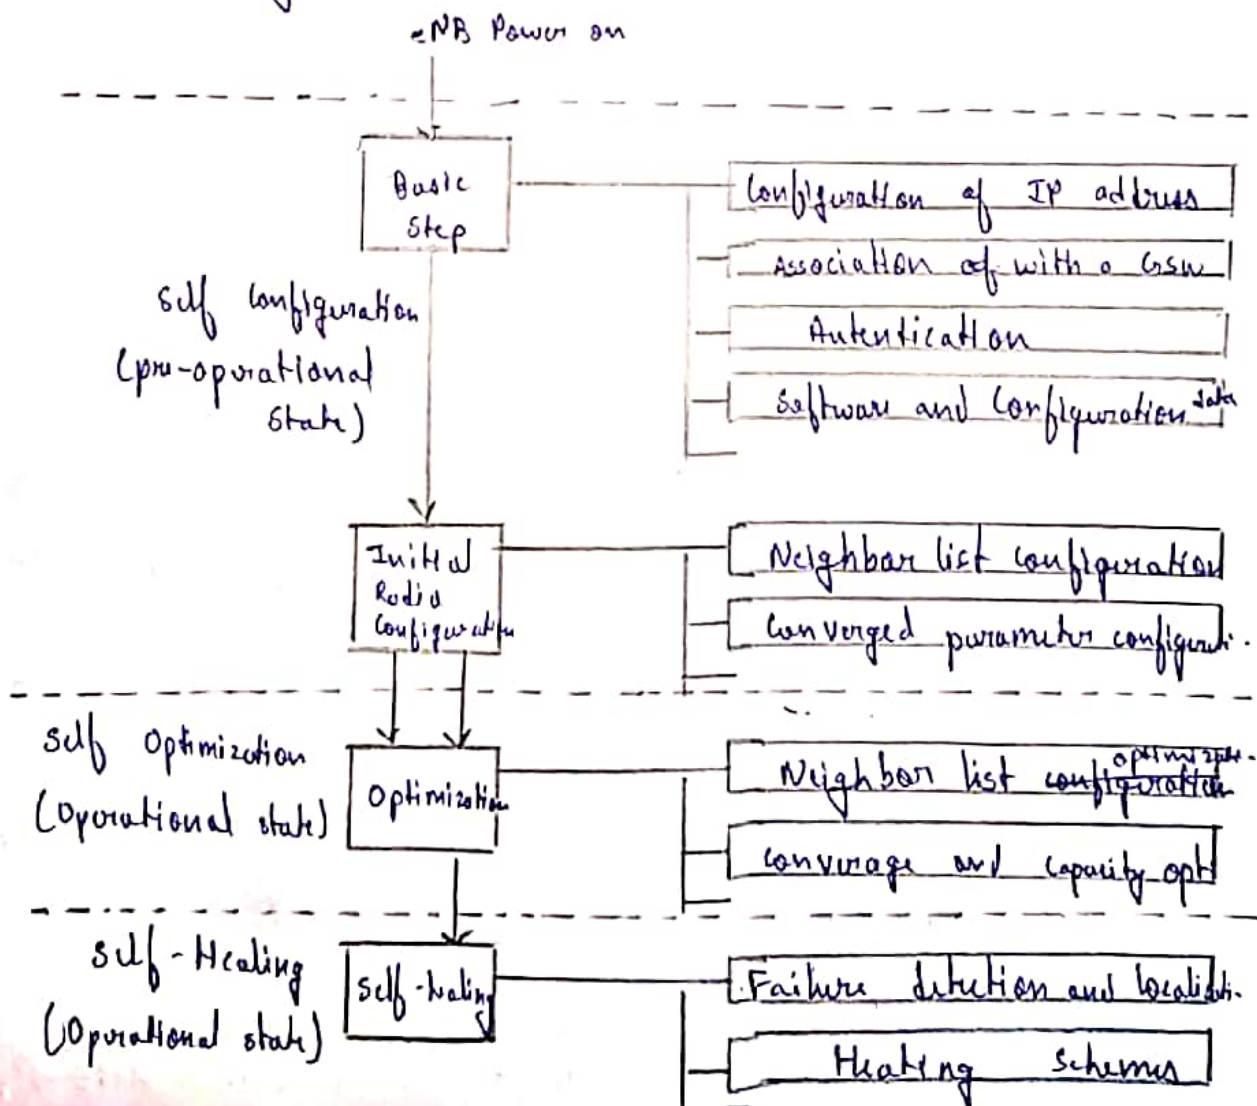 eNB Power on
Basic
Step
Configuration of IP address
Association of with a GSW
Autentication
Software and Configuration data
Self Configuration
(pre-operational
State)
Initial
Radio
Configuration
Neighbor list configuration
Converged parameter configurati.
Self Optimization
(Operational state)
Optimization
Neighbor list configuration optimizatio.
Converage and capacity opti
Self-Healing
(Operational state)
Self-healing
Failure detection and localizati.
Healing Schemes